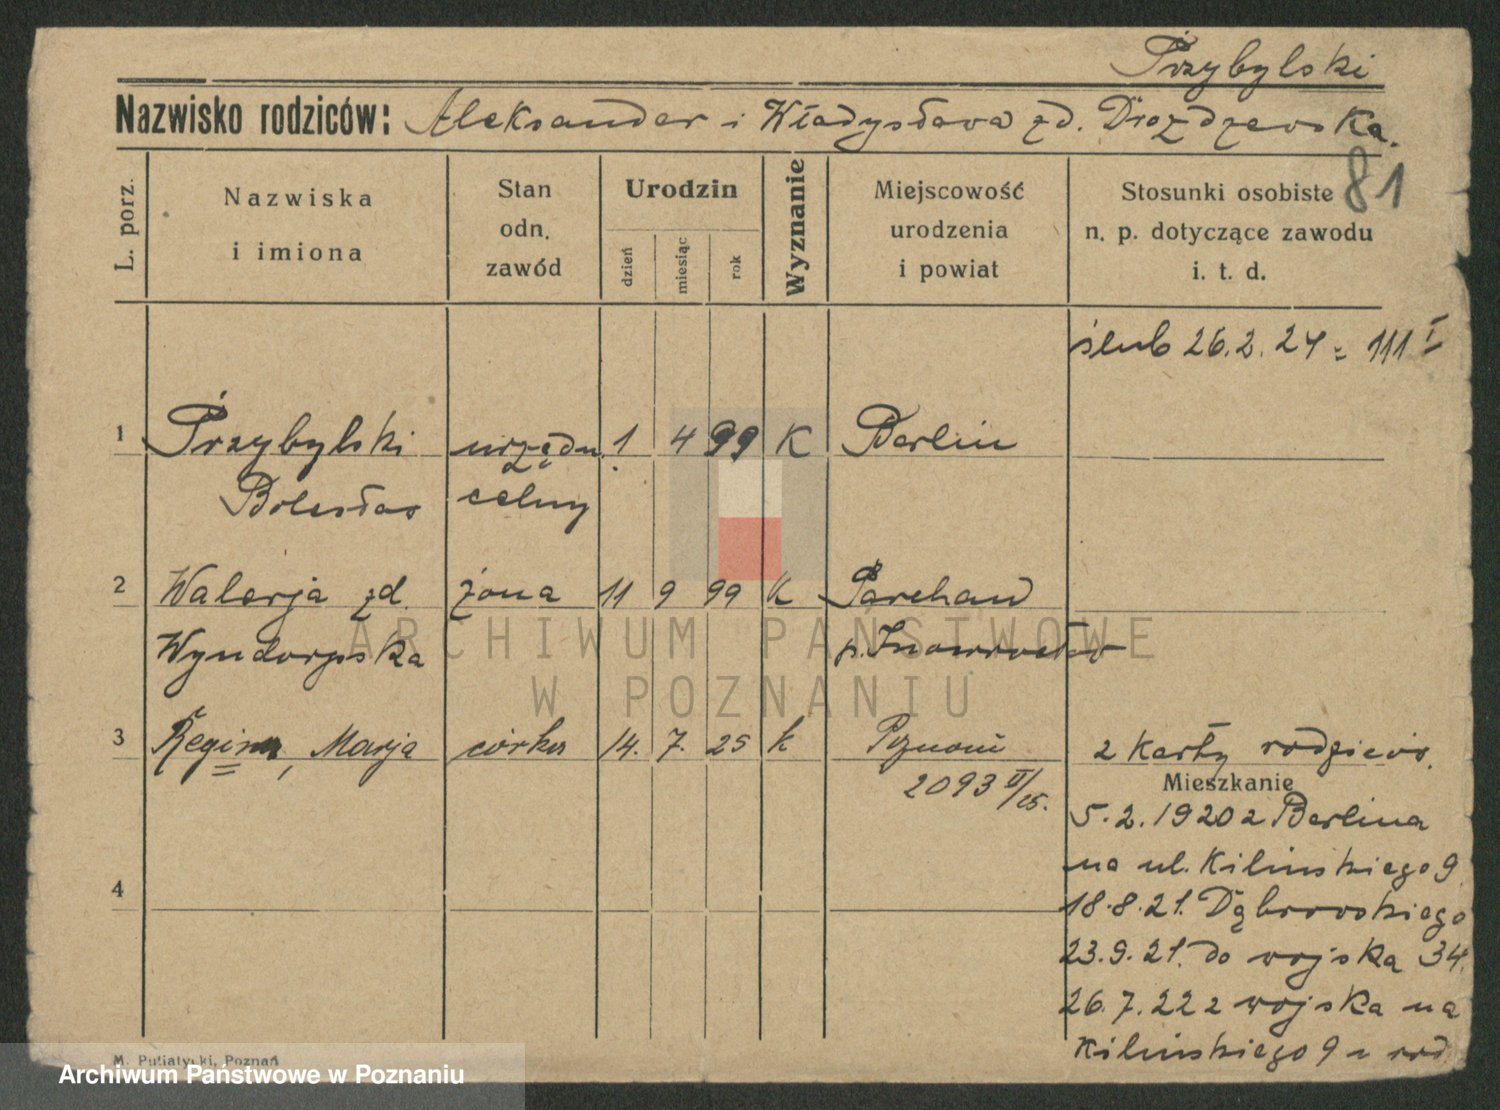 Przybylski
Nazwisko rodziców: Aleksander i Władysława zd. Drozdzewska.
81
L. porz.
Nazwiska
i imiona
Stan
odn.
zawód
Urodzin
dzień
miesiąc
rok
Wyznanie
Miejscowość
urodzenia
i powiat
Stosunki osobiste
n. p. dotyczące zawodu
i. t. d.
ślub 26.2.24 = 111 I
1 Przybylski urzędn. 1 4 99 K Berlin
Bolesław celny
2 Walerja zd. żona 11 9 99 k Parchan
Wyndorpska p. Inowrocław
3 Regina, Marja córka 14. 7. 25 k Poznań z karty rodziców.
2093 II/25.
Mieszkanie
5.2.1920 z Berlina
na ul. Kilińskiego 9
18.8.21. Dąbrowskiego
4
23.9.21. do wojska 34.
26.7.22 z wojska na
Kilińskiego 9 u rod.
M. Putiatycki, Poznań
ARCHIWUM PAŃSTWOWE
W POZNANIU
Archiwum Państwowe w Poznaniu